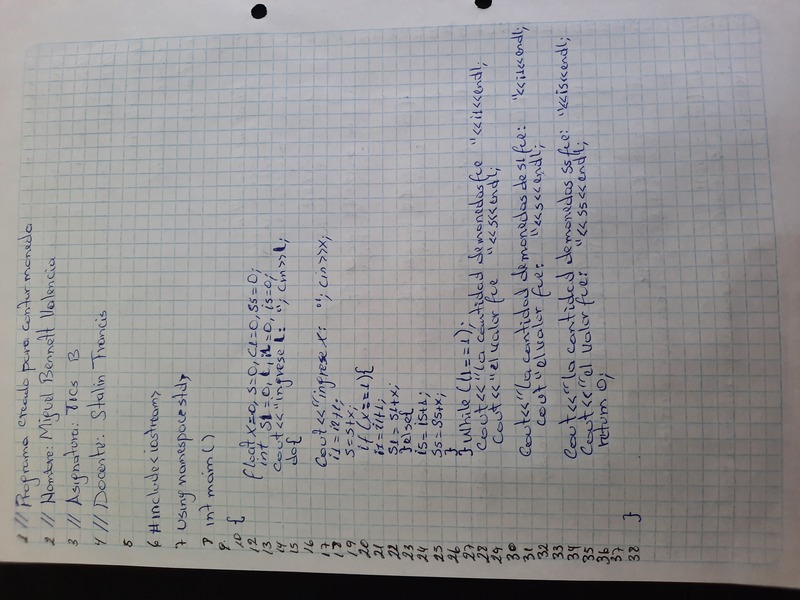 1 // Programa creado para contar moneda
2 // Nombre: Miguel Bennett Valencia
3 // Asignatura: TICs B
4 // Docente: Stalin Francis
5
6 #include<iostream>
7 using namespace std;
8 int main ()
9
10 {
12 float x=0, s=0, c1=0, s5=0;
13 int s1=0, l, i1=0, is=0;
14 cout<<"ingrese l: "; cin>>l;
15 do{
16
17 cout<<"ingrese x: "; cin>>x;
18 i1=i1+1;
19 s=s+x;
20 if (x==1){
21 i1=i1+1;
22 s1=s1+x;
23 }else{
24 is=is+1;
25 ss=ss+x;
26 }
27 }while (l1==1);
28 cout<<"la cantidad de monedas fue "<<i1<<endl;
29 cout<<"el valor fue "<<s<<endl;
30
31 cout<<"la cantidad de monedas de s1 fue: "<<i1<<endl;
32 cout "el valor fue: "<<s<<endl;
33
34 cout<<"la cantidad de monedas ss fue: "<<is<<endl;
35 cout<<"el valor fue: "<<ss<<endl;
36 return 0;
37
38 }